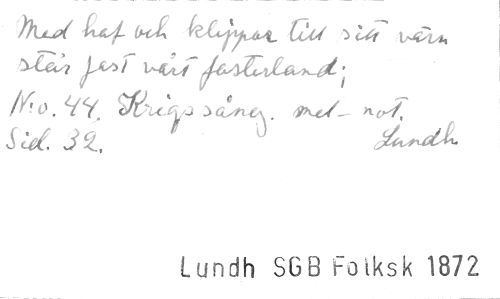 Med haf och klippor till sitt värn
står fast vårt fosterland;
N:o. 44. Krigssång. mel-not.
Sid. 32. Lundh
Lundh SGB Folksk 1872